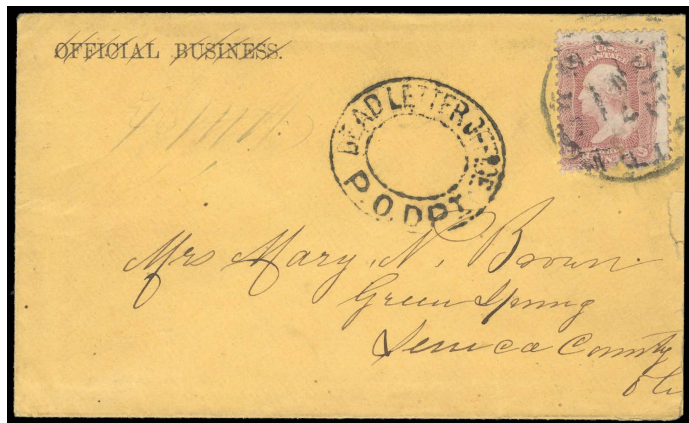 OFFICIAL BUSINESS.
DEAD LETTER OFFICE
P.O. DPT.
U.S.
POSTAGE
Mrs Mary N. Brown.
Green Spring
Seneca County
Ohio